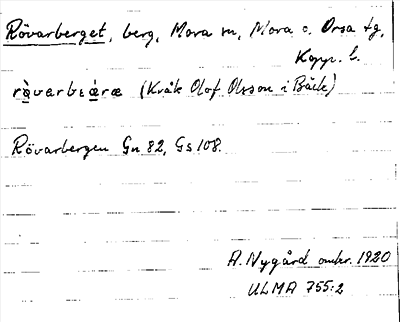 Rövarberget, berg, Mora sn, Mora o. Orsa tg,
Kopp. l.
rö̀varbɛáræ (Kråk Olof Olsson i Bäck)
Rövarbergen Gn 82, Gs 108.
A. Nygård omkr. 1920
ULMA 755:2